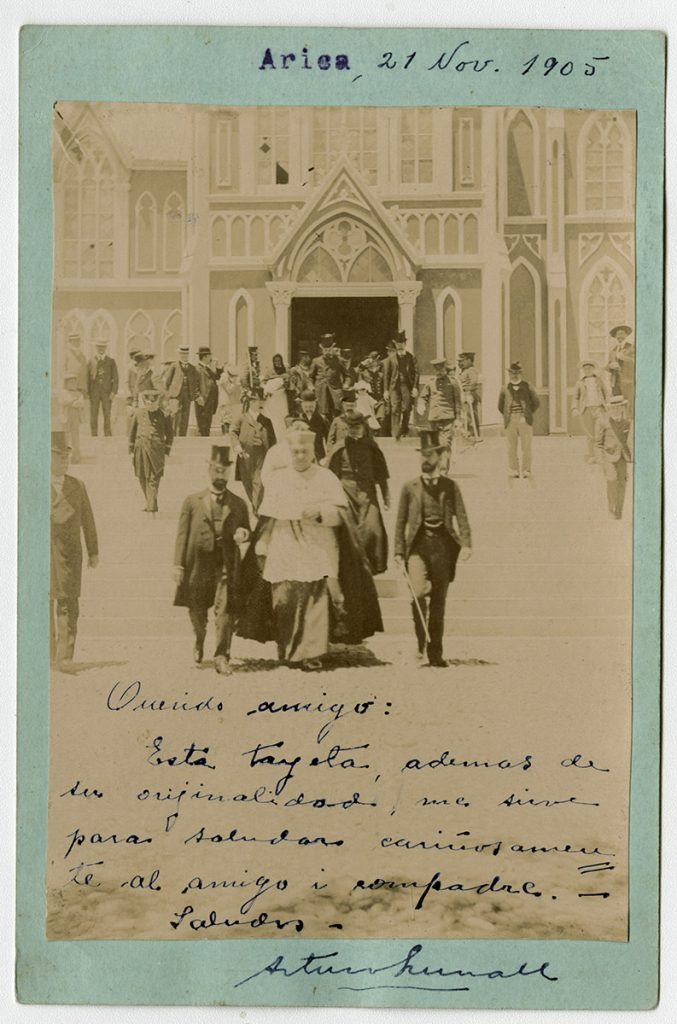 Arica, 21 Nov. 1905
Querido amigo:
Esta tarjeta, ademas de
su originalidad, me sirve
para saludar cariñosamen=
te al amigo i compadre. —
Saludos —
Arturo